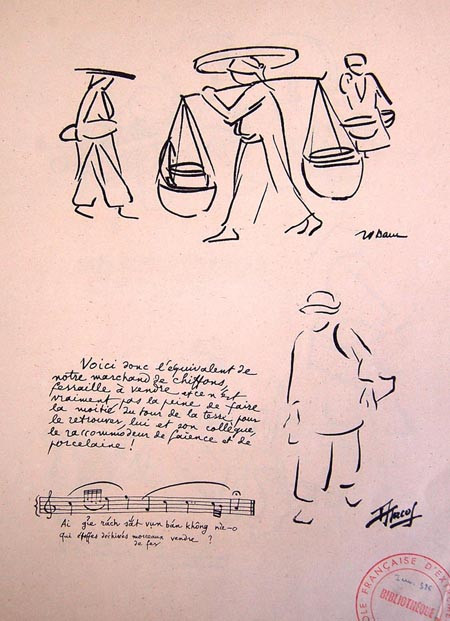 Voici donc l'équivalent de
notre marchand de chiffons,
ferraille à vendre et ce n'est
vraiment pas la peine de faire
la moitié du tour de la terre pour
le retrouver lui et son collègue
le raccommodeur de faïence et de
porcelaine !
Ai gỉe rách sắt vụn bán không nào-o
qui étoffes déchirés morceaux vendre ?
de fer
FRANÇAISE D'EX
BIBLIOTHÈQUE